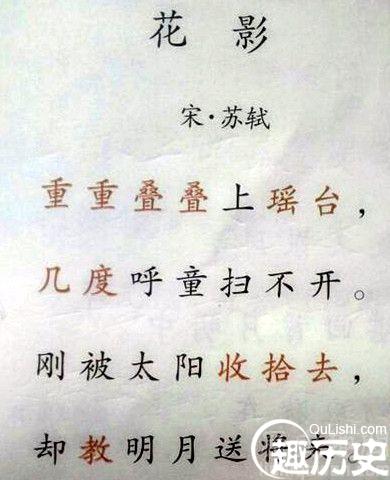 花 影
宋·苏轼
重重叠叠上瑶台，
几度呼童扫不开。
刚被太阳收拾去，
却教明月送将来。
QuLishi.com
趣历史